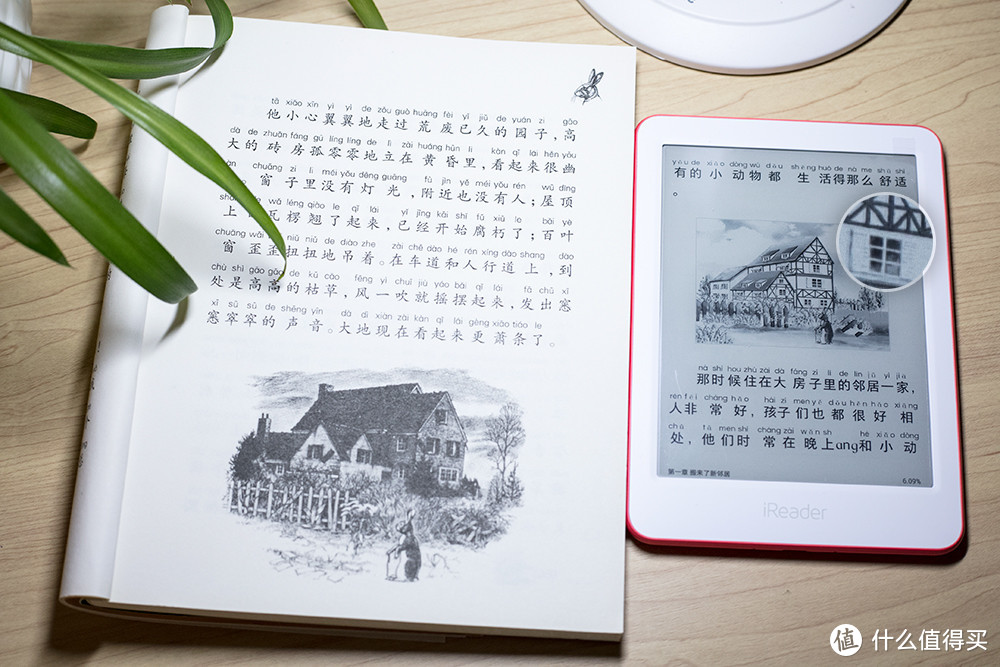 tā xiǎo xīn yì yì de zǒu guò huāng fèi yǐ jiǔ de yuán zi gāo
他小心翼翼地走过荒废已久的园子，高
dà de zhuān fáng gū líng líng de lì zài huáng hūn lǐ kàn qǐ lái hěn yōu
大的砖房孤零零地立在黄昏里，看起来很幽
chuāng zi lǐ méi yǒu dēng guāng fù jìn yě méi yǒu rén wū dǐng
窗子里没有灯光，附近也没有人；屋顶
wǎ léng qiào le qǐ lái yǐ jīng kāi shǐ fǔ xiǔ le bǎi yè
上瓦楞翘了起来，已经开始腐朽了；百叶
chuāng wāi niǔ niǔ de diào zhe zài chē dào hé rén xíng dào shang dào
窗歪歪扭扭地吊着。在车道和人行道上，到
chù shì gāo gāo de kū cǎo fēng yì chuī jiù yáo bǎi qǐ lái fā chū xī
处是高高的枯草，风一吹就摇摆起来，发出窸
xī sū sū de shēng yīn dà dì xiàn zài kàn qǐ lái gèng xiāo tiáo le
窸窣窣的声音。大地现在看起来更萧条了。
yǒu de xiǎo dòng wù dōu shēng huó de nà me shū shì
有的小动物都生活得那么舒适
。
nà shí hou zhù zài dà fáng zi lǐ de lín jū yì jiā
那时候住在大房子里的邻居一家，
rén fēi cháng hǎo hái zi men yě dōu hěn hǎo xiāng
人非常好，孩子们也都很好相
chǔ tā men shí cháng zài wǎn sh hé xiǎo dòng
处，他们时常在晚上ang和小动
第一章 搬来了新邻居 6.09%
iReader
值 什么值得买